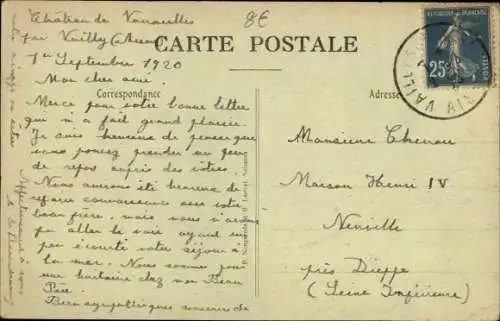 Château de
par Vailly (Aisne)
1er Septembre 1920
8€
CARTE POSTALE
Correspondance
Adresse
REPUBLIQUE FRANÇAISE
25c
POSTES
VAILLY
AISNE
Mon cher ami.
Merci pour votre bonne lettre
qui m'a fait grand plaisir.
Je suis heureux de penser que
vous pouvez prendre un peu
de repos auprès des vôtres.
Nous aurions été heureux de
refaire connaissance avec votre
bon père, mais nous n'avons
pu aller le voir ayant un
peu écourté votre séjour à
la mer. Nous sommes pour
une huitaine chez mon Beau
Père.
Bien sympathiques souvenirs de
Affectueusement à vous
Monsieur
Maison Henri IV
Neuville
près Dieppe
(Seine Inférieure)